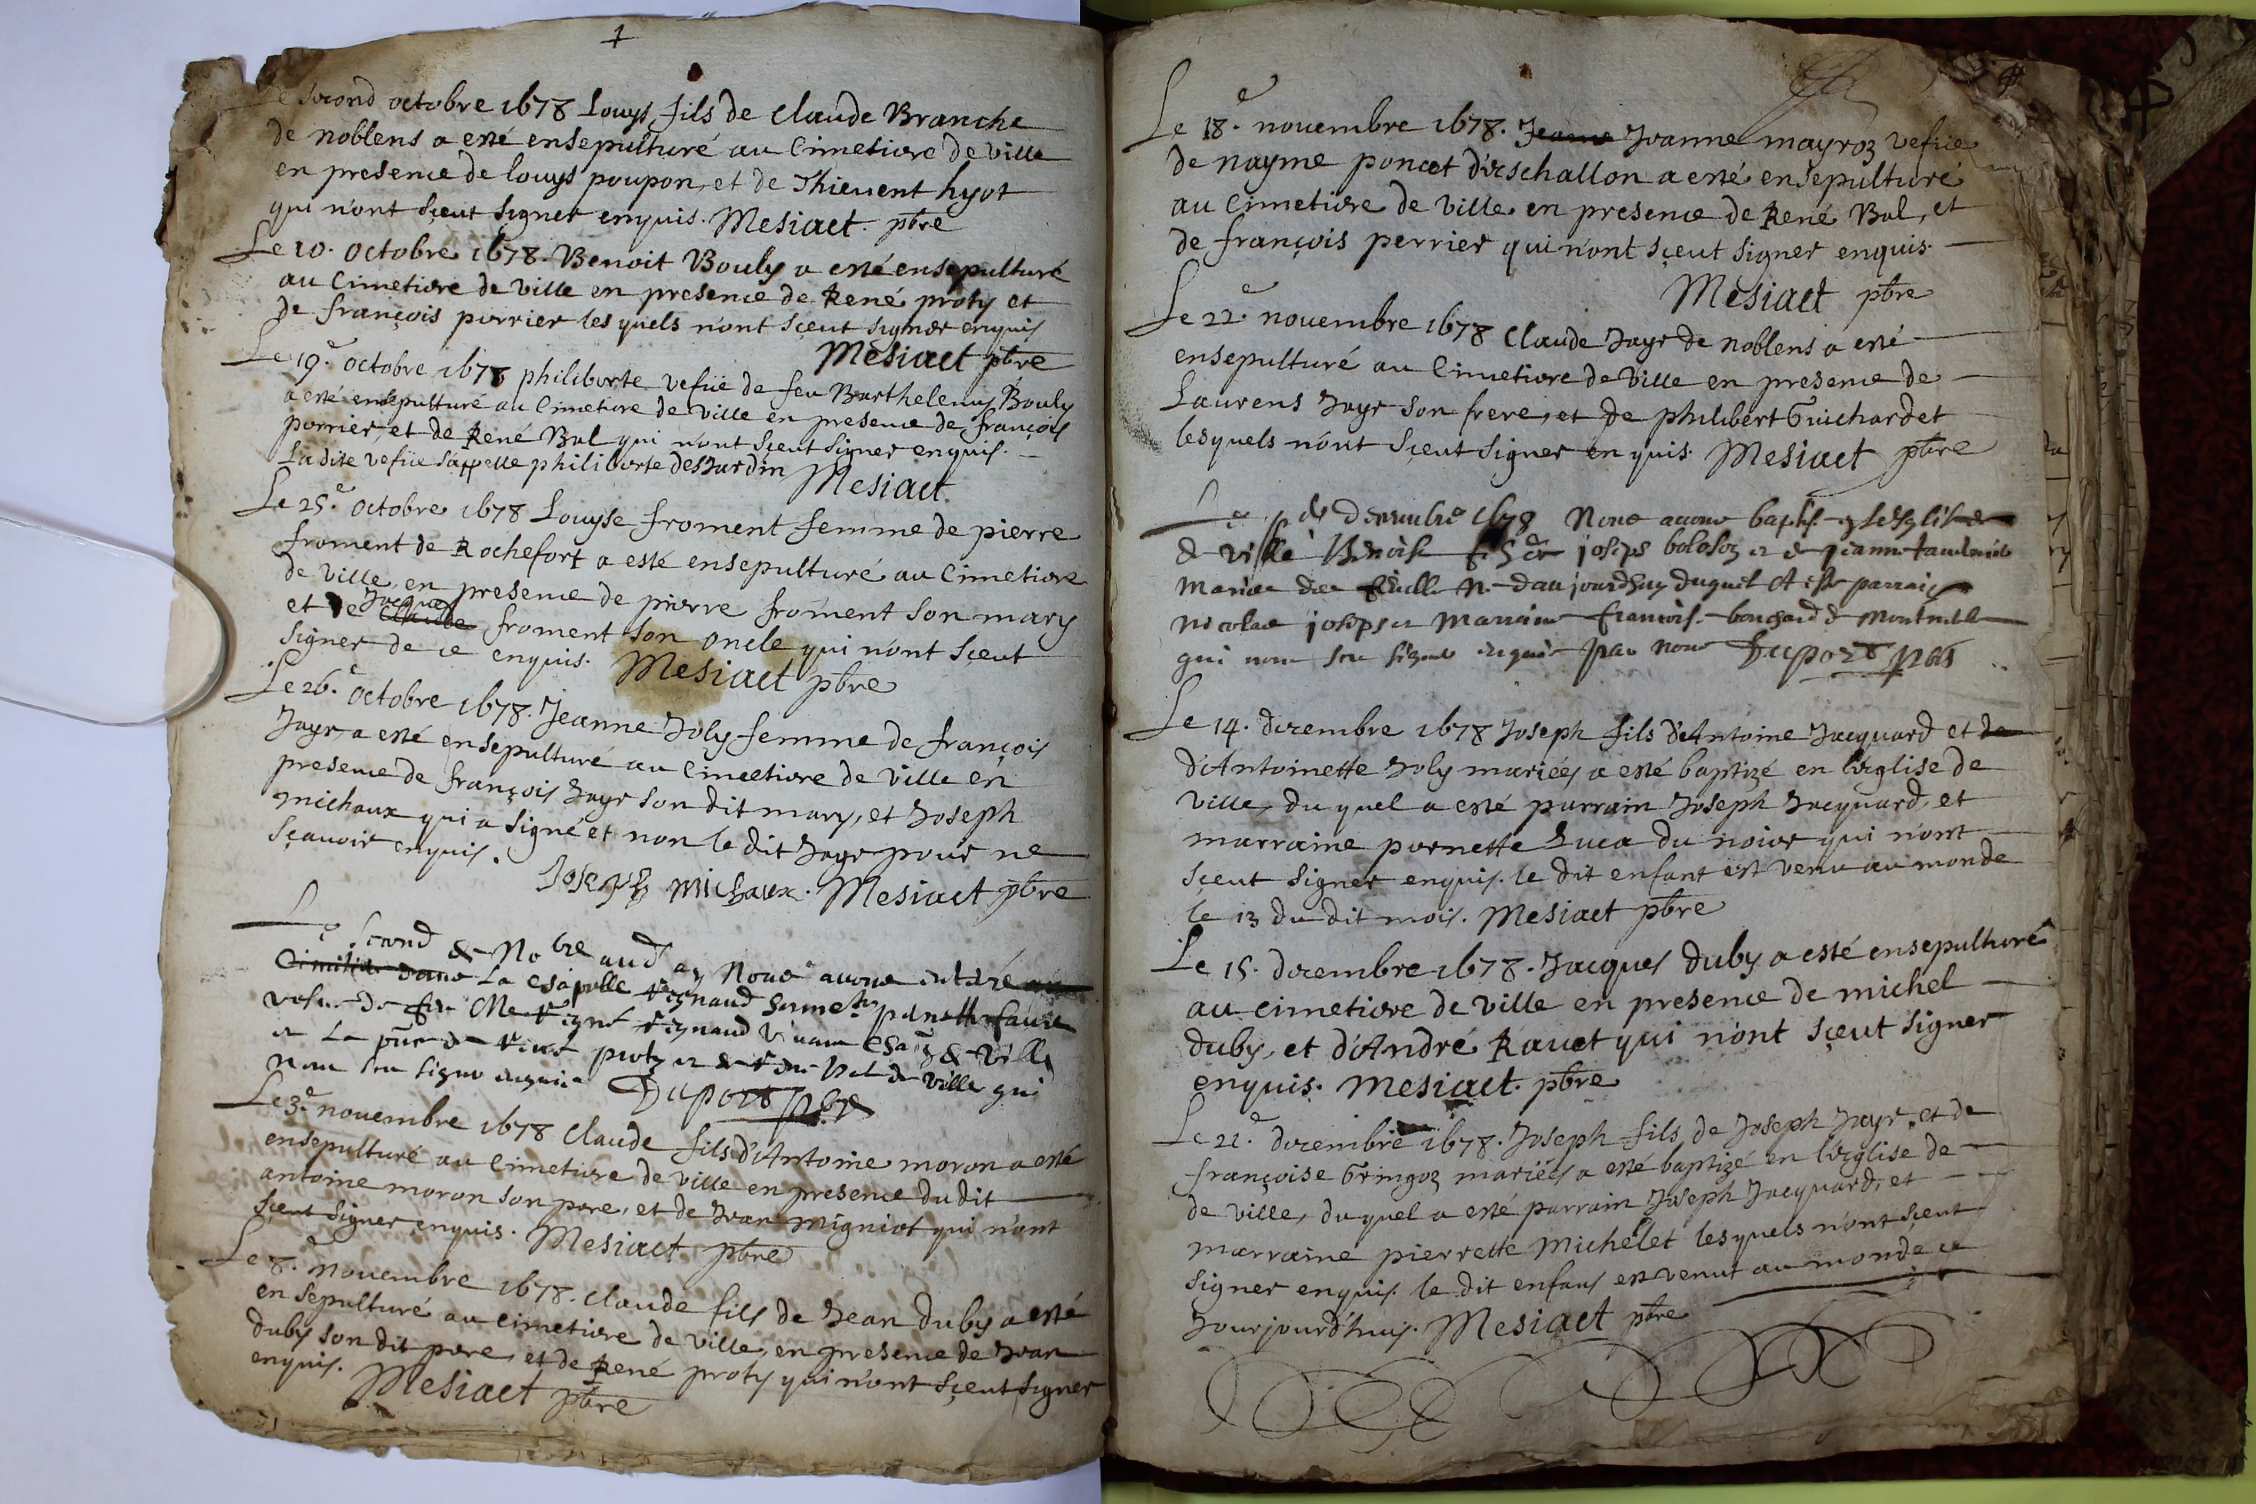 Le second octobre 1678 Louys fils de Claude Branche
de noblens a esté ensepulturé au Cimetiere de ville
en presence de louys poupon, et de Thievent hyot
qui n'ont sçeut signer enquis. Mesiact pbre
Le 10. octobre 1678. Benoit Bouly a esté ensepulturé
au Cimetiere de ville en presence de René proty et
de françois perrier les quels n'ont sçeut signer enquis
Mesiact pbre
Le 19e octobre 1678 philiberte vefüe de feu Barthelemy Bouly
a esté ensepulturé au Cimetiere de ville en presence de françois
perrier et de René Bal qui n'ont sçeut signer enquis.
La dite vefüe s'appelle philiberte desJardin Mesiact
Le 25e octobre 1678 Louyse froment femme de pierre
froment de Rochefort a esté ensepulturé au Cimetiere
de ville, en presence de pierre froment son mary
et de Jacques froment son oncle qui n'ont sçeut
signer de ce enquis. Mesiact pbre
Le 26e octobre 1678. Jeanne Joly femme de françois
Jayr, a esté ensepulturé au Cimetiere de ville en
presence de françois Jayr son dit mary, et Joseph
michaux qui a signé et non le dit Jayr pour ne
sçavoir enquis.
Joseph michaux. Mesiact pbre
Le second de Nobre aud an Nous avons enteré
Cimitiere dans La chapelle
vefue de feu Me
et La
non sceu signe enquis Duport pbre
Le 3e novembre 1678 Claude fils d'Antoine moron a esté
ensepulturé au Cimetiere de ville en presence du dit
antoine moron son pere, et de Jean migniot qui n'ont
sçeut signer enquis. Mesiact pbre
Le 8e novembre 1678. Claude fils de Jean duby a esté
ensepulturé au cimetiere de ville, en presence de Jean
duby son dit pere, et de René proty qui n'ont sçeut signer
enquis. Mesiact pbre
Le 18e novembre 1678. Jeanne Jeanne mayroz vefüe
de nayme poncet d'eschallon a esté ensepulturé
au Cimetiere de ville en presence de René Bal, et
de françois perrier qui n'ont sçeut signer enquis.
Mesiact pbre
Le 22e novembre 1678 Claude Jayr de noblens a esté
ensepulturé au Cimetiere de ville en presence de
Laurens Jayr son frere, et de philibert Guichardet
lesquels n'ont sçeut signer enquis. Mesiact pbre
Le de decembre 1678 Nous avons baptisé
de ville Benoist fils de joseps bolosoz et de jeanne
Mariee d'aujourdhuy duquel A este parrain
nicolas joseps et Marraine francoise bouchard de
qui non sceu signe enquis par nous Duport pbre
Le 14. decembre 1678 Joseph fils d'Antoine Jacquard et de
d'Antoinette Joly mariées a esté baptizé en l'eglise de
ville, du quel a esté parrain Joseph Jacquard, et
marraine pernette Juca du noier qui n'ont
sçeut signer enquis. le dit enfant est venu au monde
le 13 du dit mois. Mesiact pbre
Le 15. decembre 1678. Jacques duby a esté ensepulturé
au cimetiere de ville en presence de michel
duby, et d'André Ravet qui n'ont sçeut signer
enquis. Mesiact. pbre
Le 22e decembre 1678. Joseph fils de Joseph Jayr, et de
françoise Gringoz mariées a esté baptizé en l'eglise de
de ville, du quel a esté parrain Joseph Jacquard, et
marraine pierrette Michelet lesquels n'ont sçeut
signer enquis. le dit enfans est venut au monde ce
Jourjourd'huy. Mesiact pbre